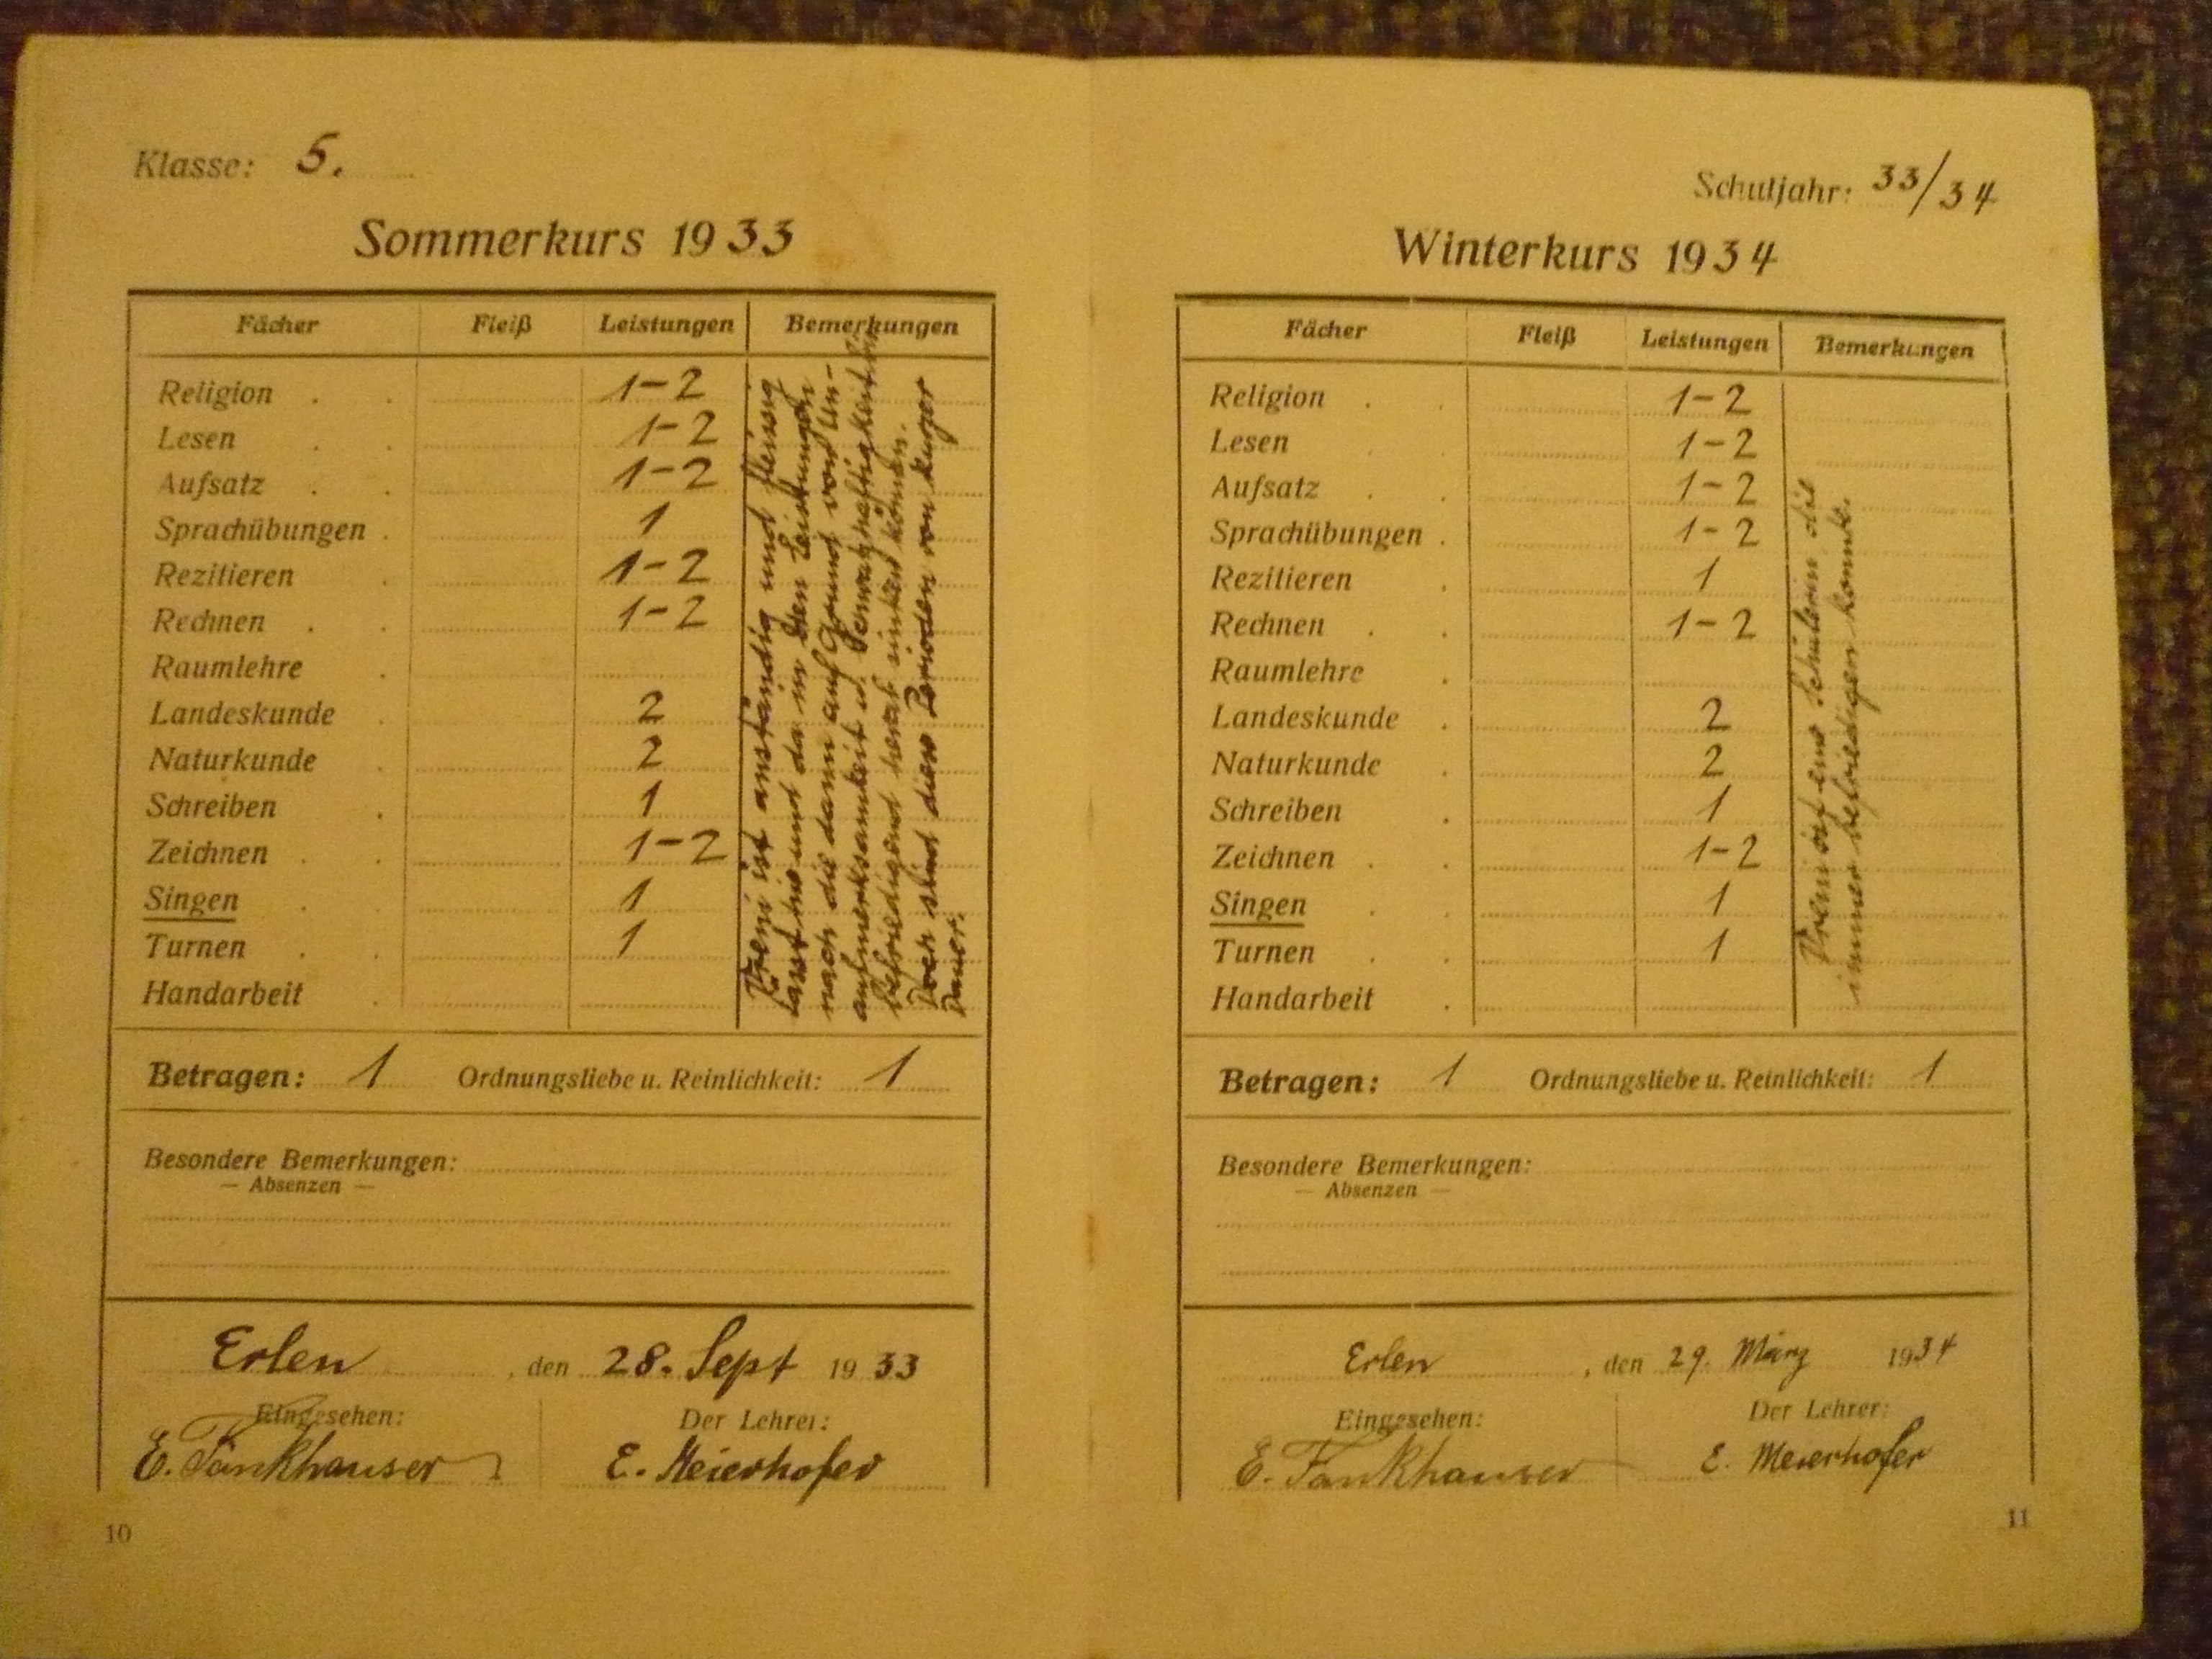 Klasse: 5.
Sommerkurs 1933
Fächer Fleiß Leistungen Bemerkungen
Religion 1-2
Lesen 1-2
Aufsatz 1-2
Sprachübungen 1
Rezitieren 1-2
Rechnen 1-2
Raumlehre
Landeskunde 2
Naturkunde 2
Schreiben 1
Zeichnen 1-2
Singen 1
Turnen 1
Handarbeit
Vreni ist anständig und fleissig
lässt hie und da in den Leistungen
nach die dann auf Grund von Un-
aufmerksamkeit u. Schwatzhaftigkeit
befriedigend herab sinken können.
Doch sind diese Perioden von kurzer
Dauer.
Betragen: 1 Ordnungsliebe u. Reinlichkeit: 1
Besondere Bemerkungen:
— Absenzen —
Erlen, den 28. Sept 1933
Eingesehen: Der Lehrer:
E. Fankhauser E. Meierhofer
10
Schuljahr: 33/34
Winterkurs 1934
Fächer Fleiß Leistungen Bemerkungen
Religion 1-2
Lesen 1-2
Aufsatz 1-2
Sprachübungen 1-2
Rezitieren 1
Rechnen 1-2
Raumlehre
Landeskunde 2
Naturkunde 2
Schreiben 1
Zeichnen 1-2
Singen 1
Turnen 1
Handarbeit
Vreni ist eine Schülerin die
immer befriedigen konnte.
Betragen: 1 Ordnungsliebe u. Reinlichkeit: 1
Besondere Bemerkungen:
— Absenzen —
Erlen, den 29. März 1934
Eingesehen: Der Lehrer:
E. Fankhauser E. Meierhofer
11